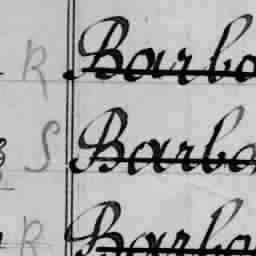 R Barba
S Barba
R Barba